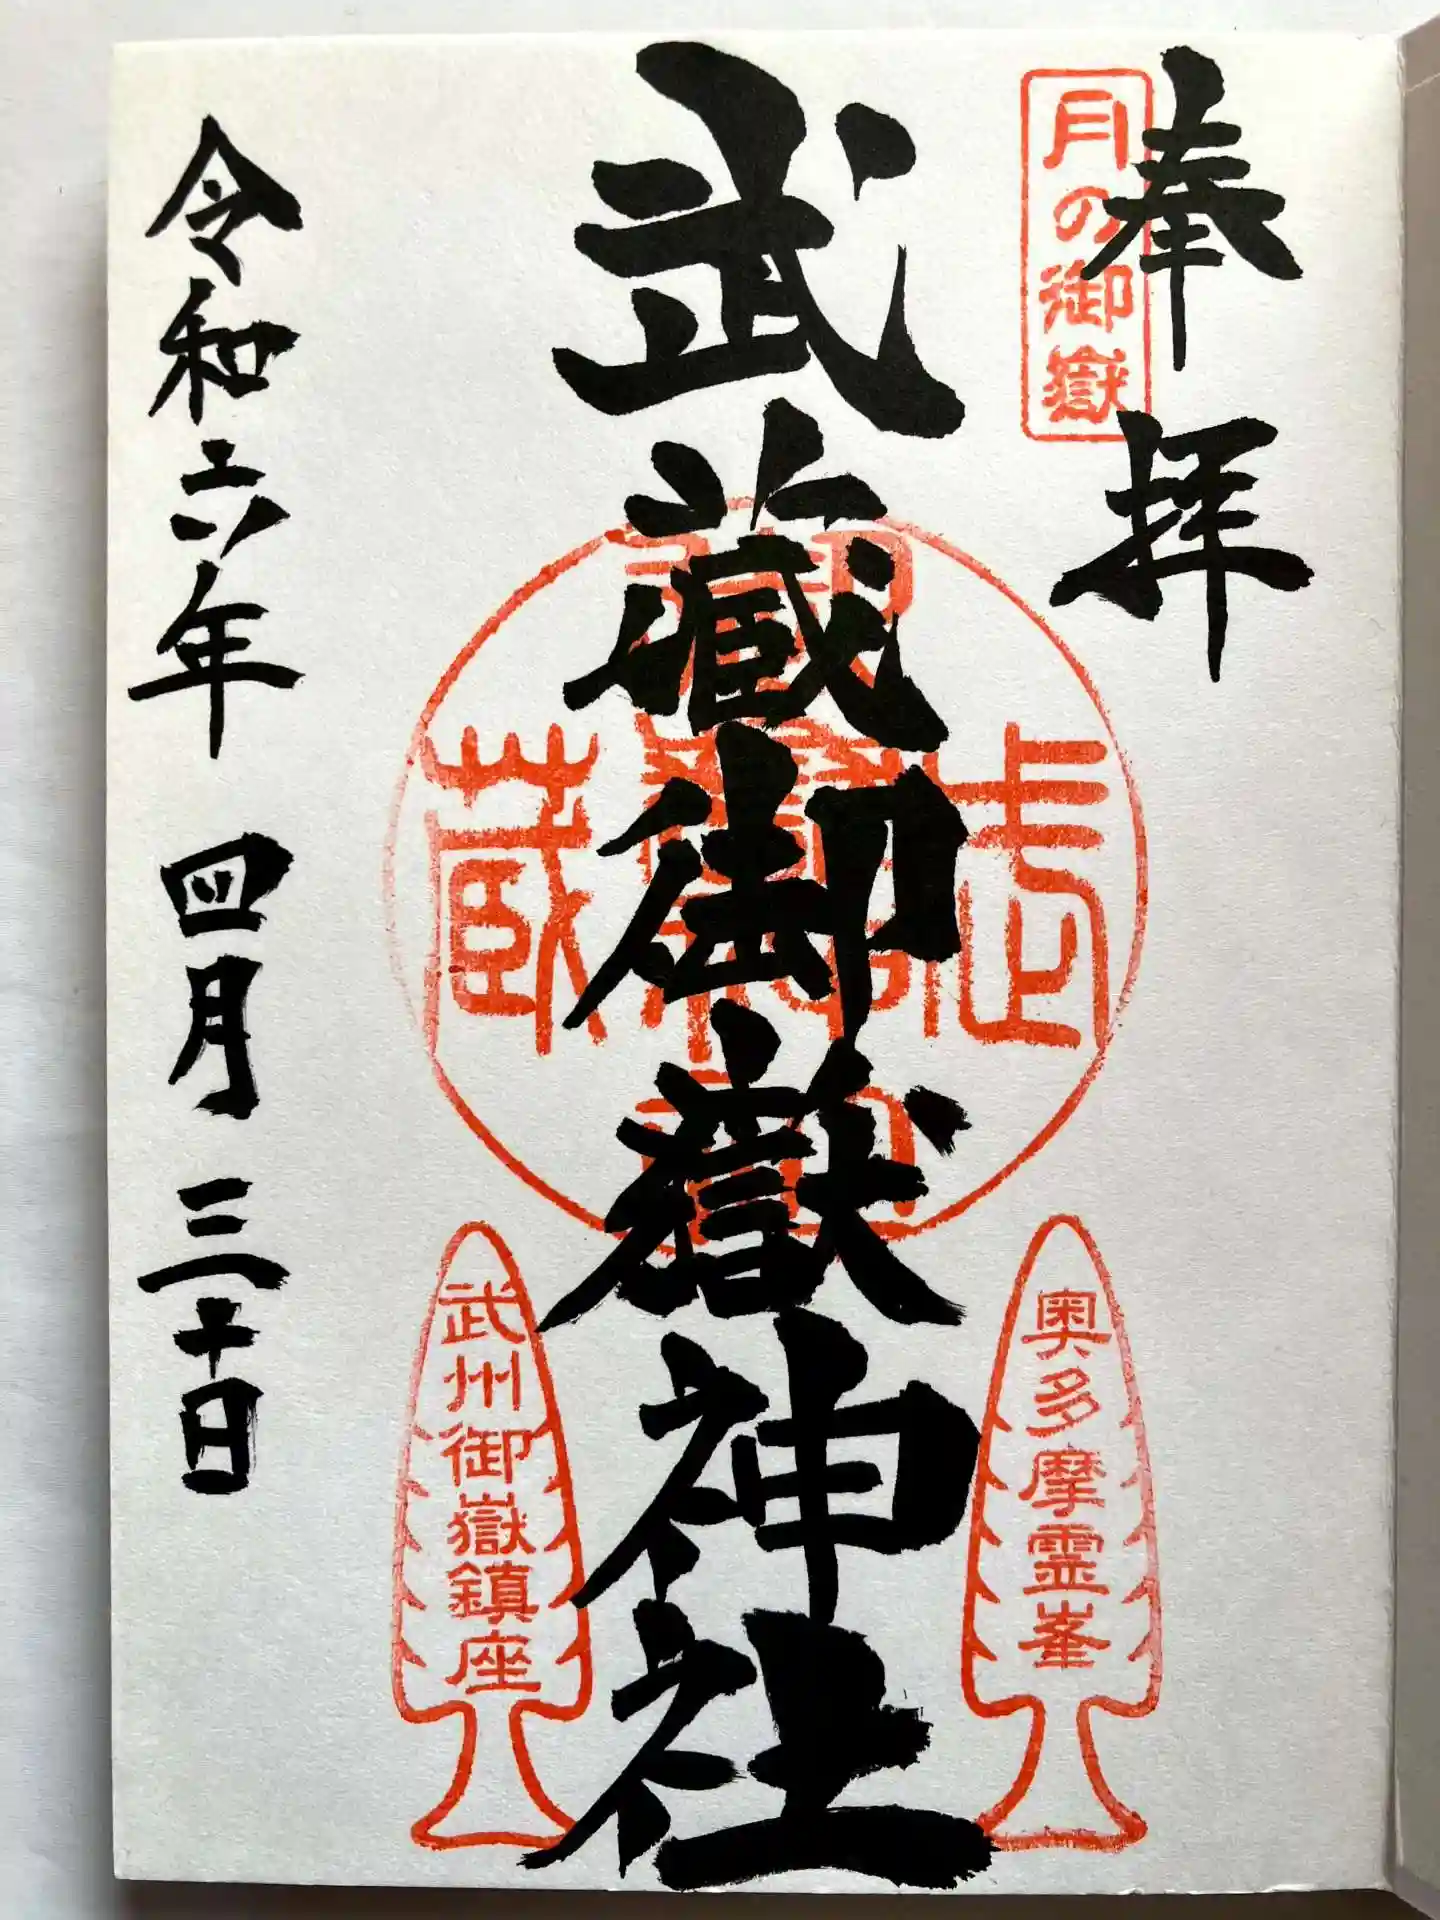 奉拝
月の御嶽
武蔵御嶽神社
武蔵
奥多摩霊峯
武州御嶽鎮座
令和六年 四月三十日